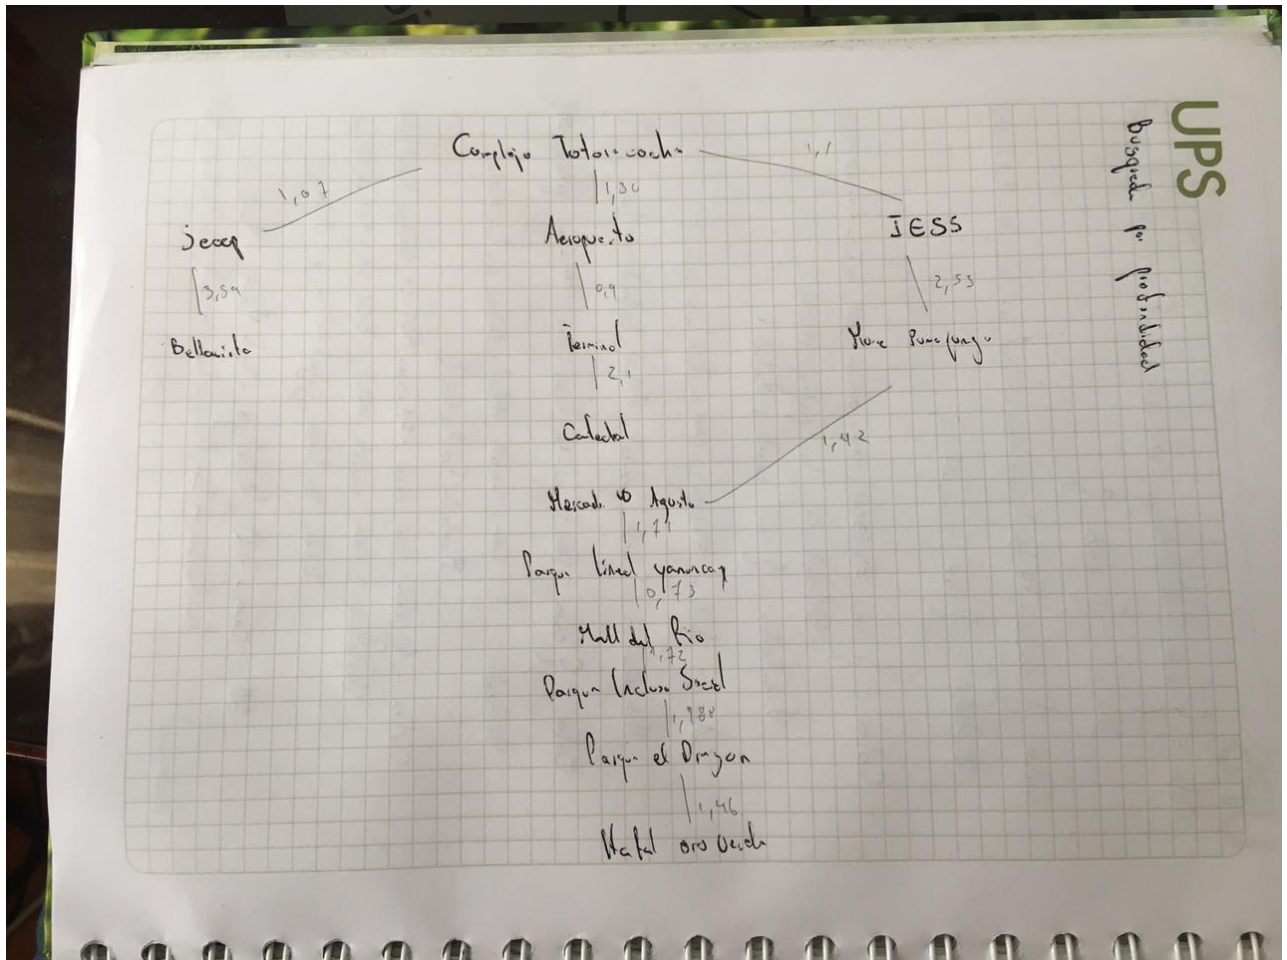 UPS
Busqueda por profundidad
Complejo Totoracocha
1,1
1,07
1,30
jeep
Aeropuerto
IESS
3,59
0,9
2,55
Bellavista
Terminal
Pumapungo
2,1
Catedral
1,42
Mercado 10 Agosto
1,71
Parque lineal yanuncay
0,73
Mall del Rio
1,72
Parque Incluso Social
Parque el Dragon
1,46
oro Verde